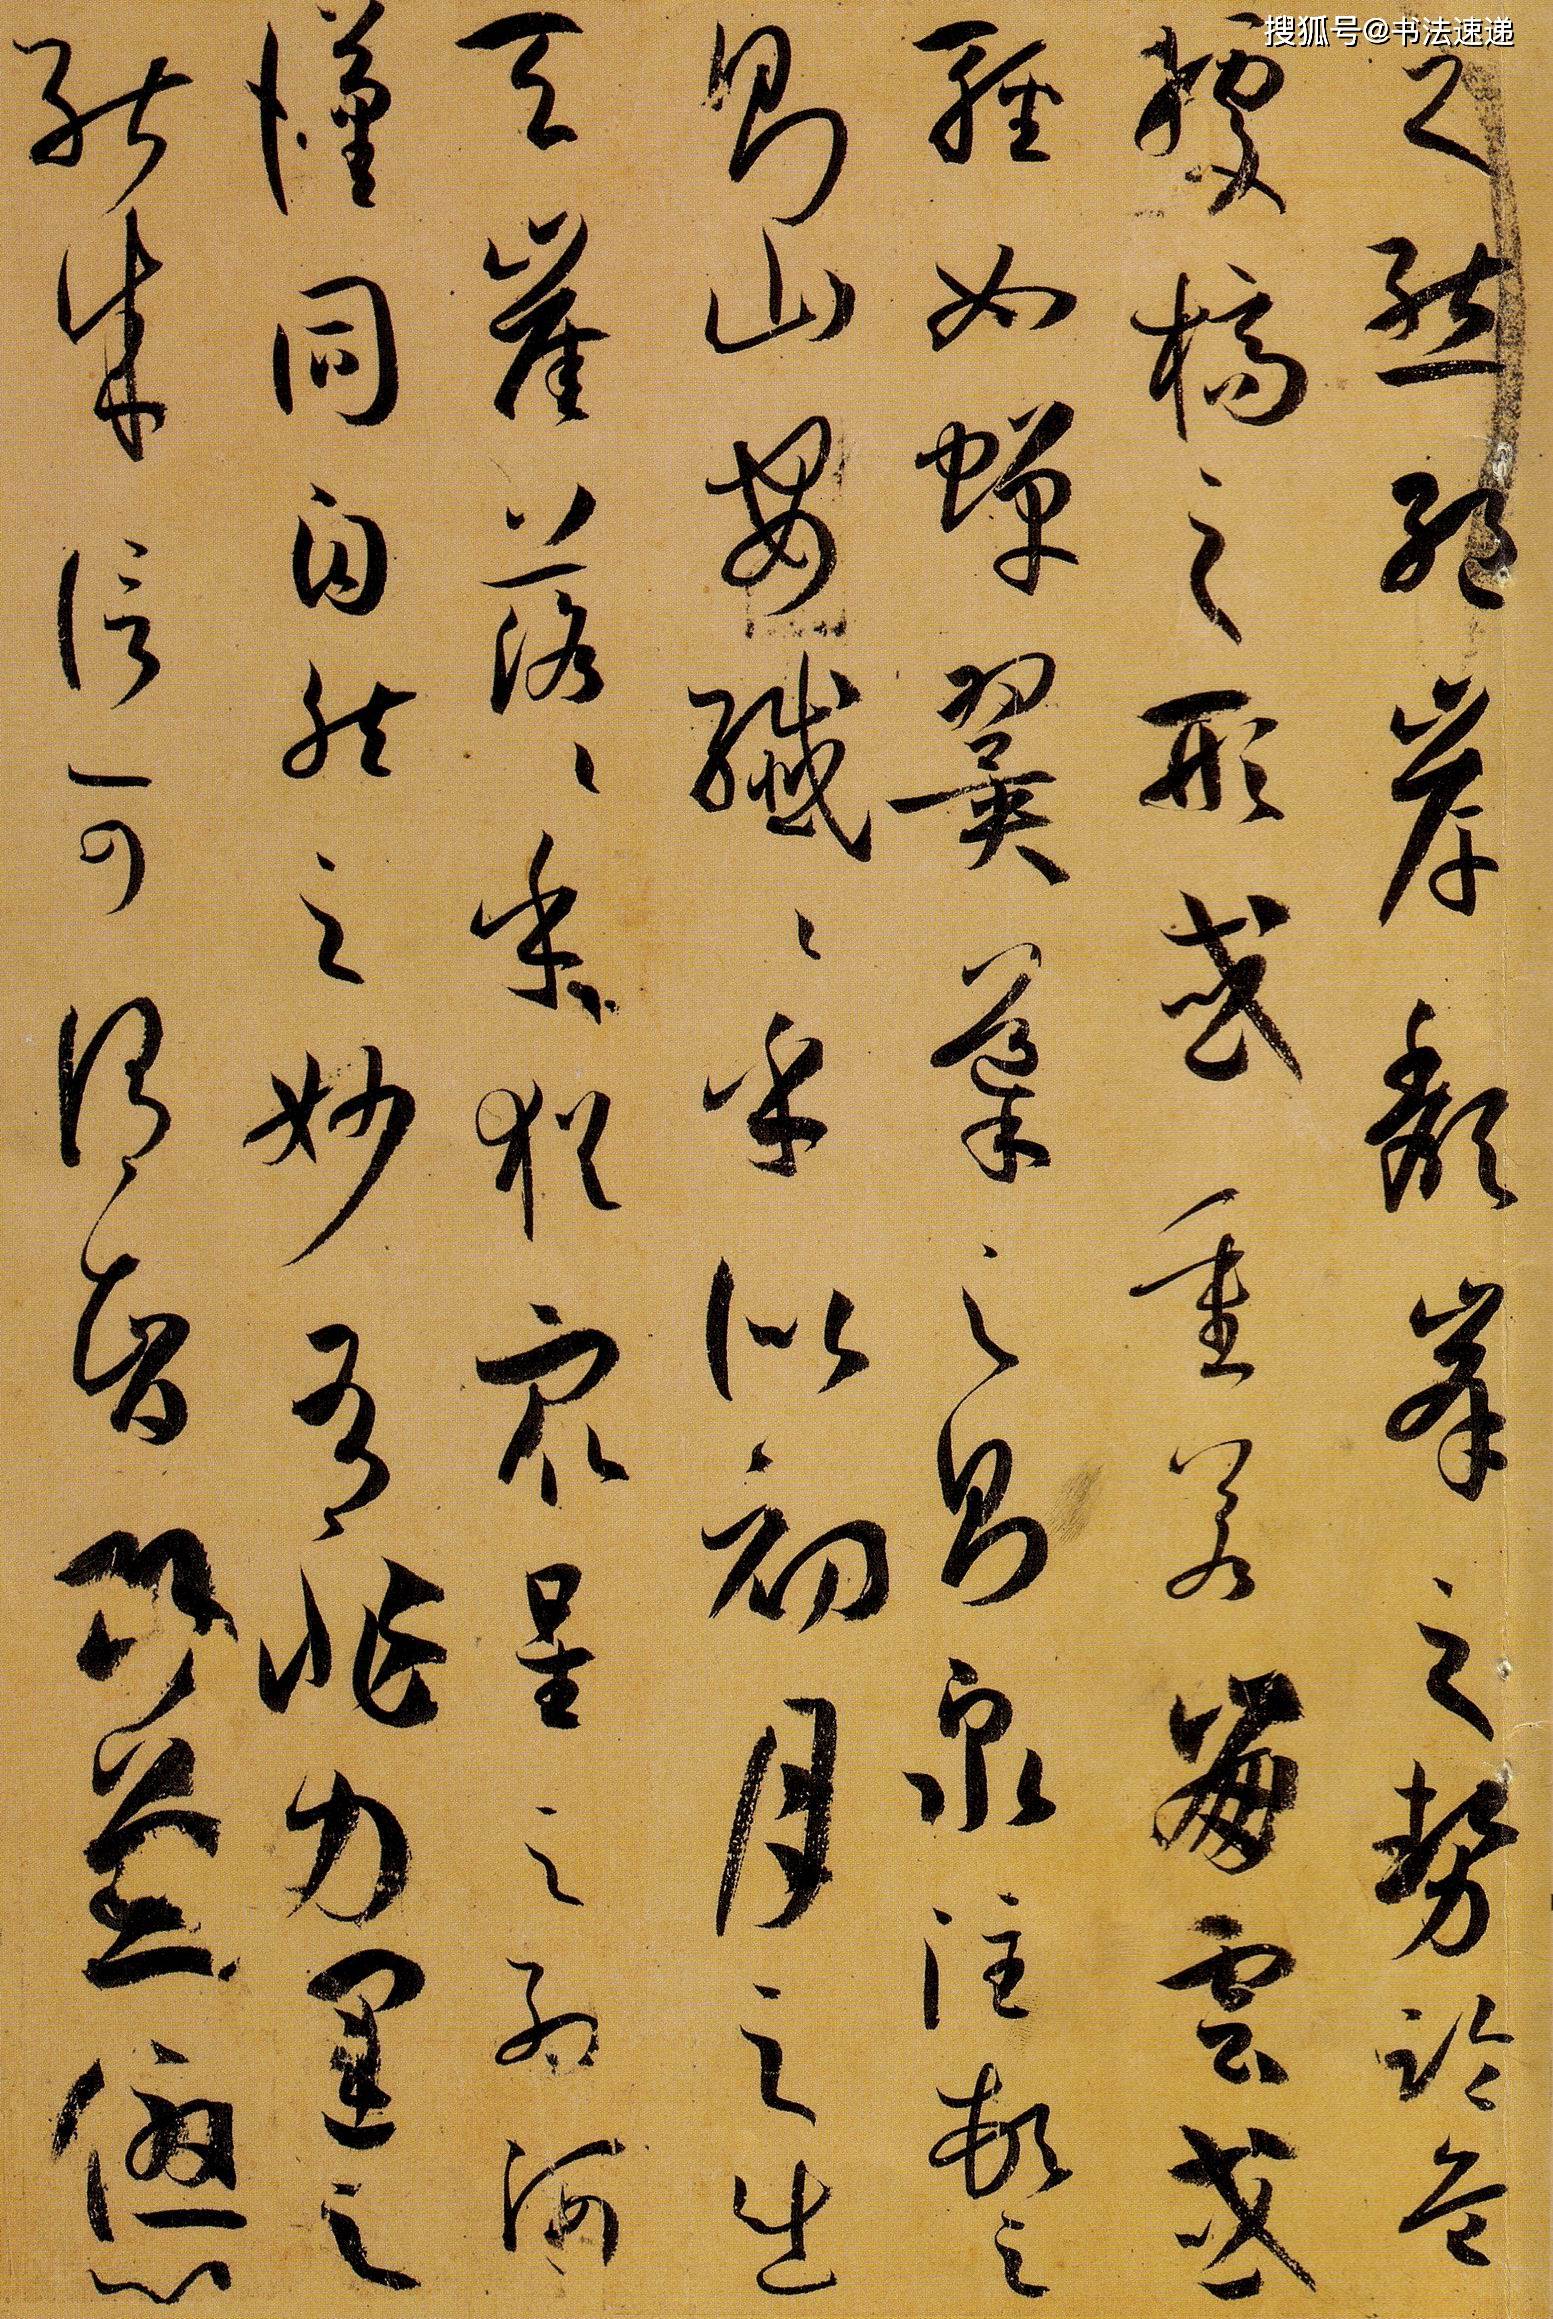 搜狐号@书法速递
之態絶岸頹峯之勢臨危
據槁之形或重若崩雲或
輕如蟬翼導之則泉注頓之
則山安纖〻乎似初月之出
天崖落〻乎猶衆星之列河
漢同自然之妙有非力運之
能成信可謂智巧兼優心